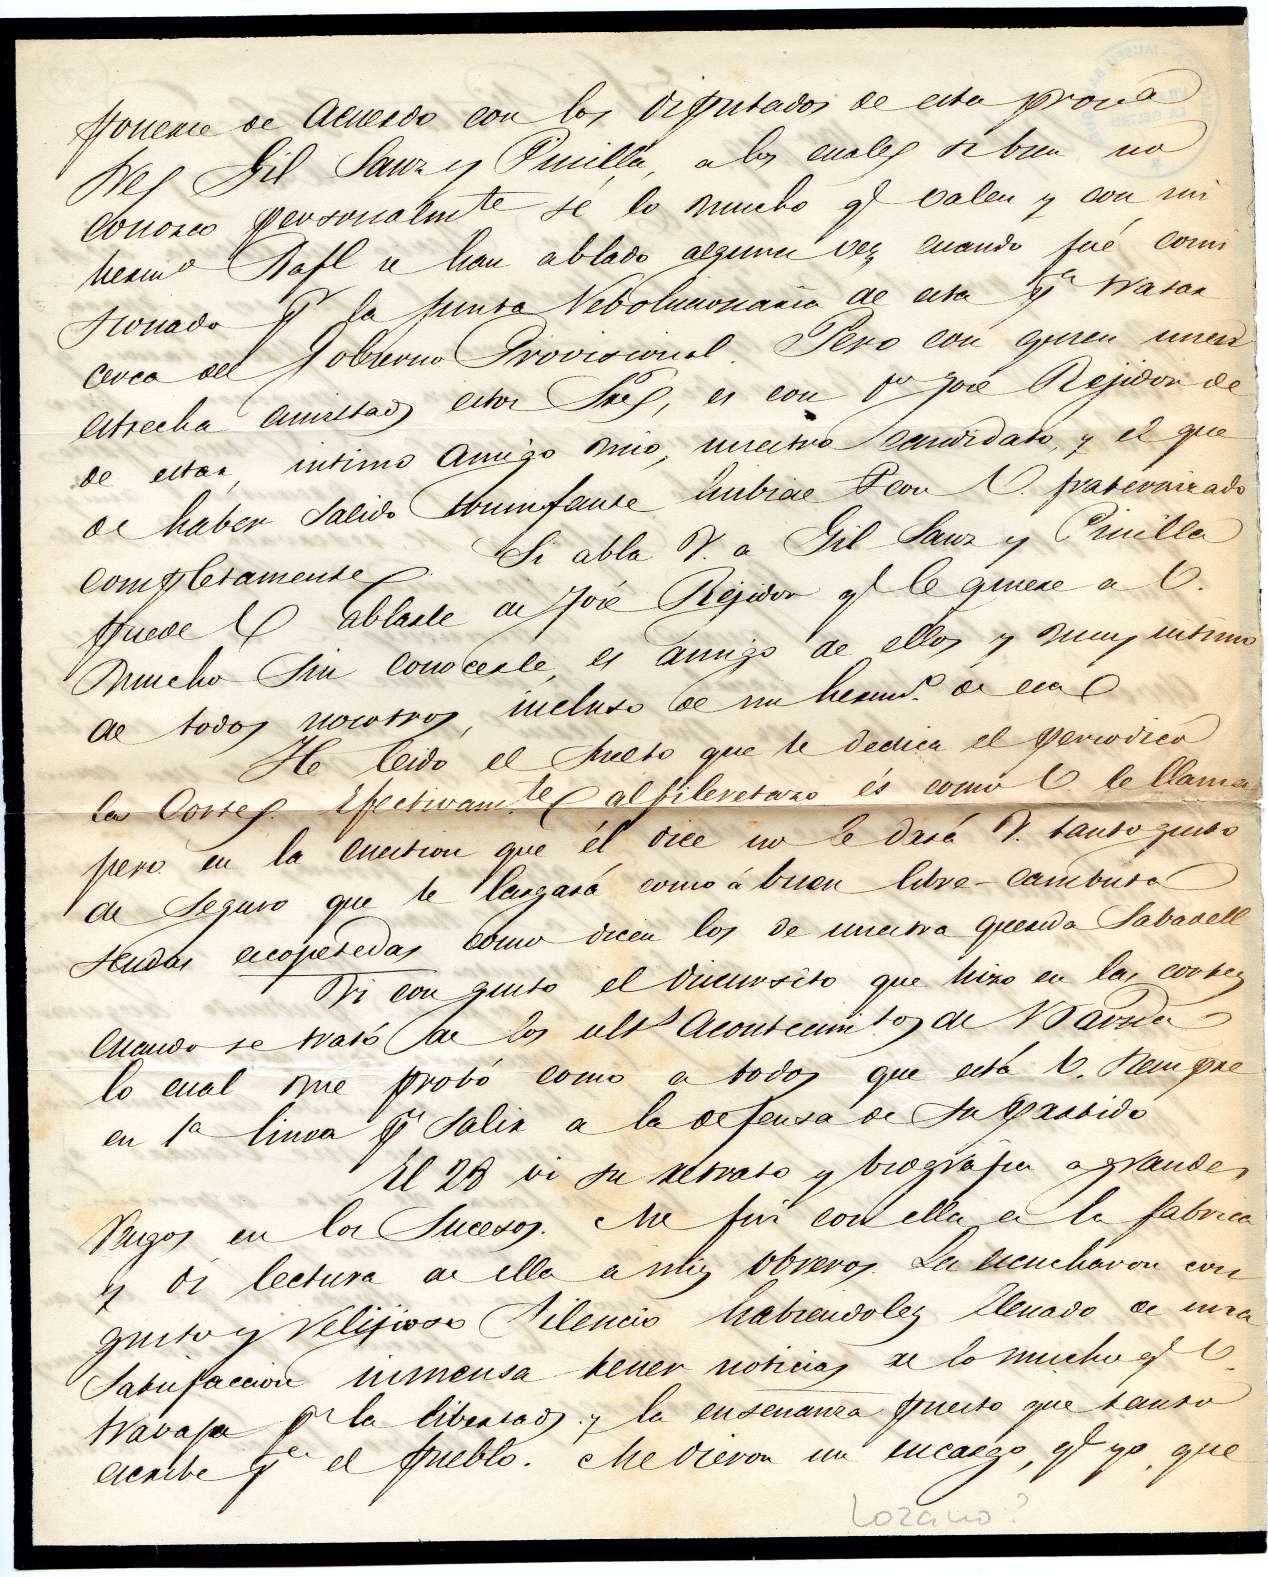 ponerse de acuerdo con los diputados de esta prov.a
Sres Gil Sanz y Pinilla, a los cuales si bien no
conozco personalmte sé lo mucho q.e valen y con mi
herm.o Rafl se han ablado alguna vez cuando fué comi
sionado p.r la junta Rebolucionaria de esta p.a tratar
cerca del Gobierno Provisional. Pero con quien unen
estrecha amistad estos Sres, es con Dn José Rejidor de
de esta, intimo amigo mio, nuestro candidato, y el que
de haber salido triunfante hubiese con V. fraternizado
completamente. Si abla V. a Gil Sanz y Pinilla
puede V ablarle de José Rejidor q.e le quiere a V.
mucho sin conocerle, es amigo de ellos y muy intimo
de todos nosotros, incluso de mi herm.o de esa
He leido el suelto que le dedica el periodico
las Cortes. Efectivamte alfileretazo és como V le llama
pero en la cuestion que él dice no le dará V. tanto gusto
de seguro que le largará como á buen libre-cambista
sendas escopetedas como dicen los de nuestra querida Sabadell
Vi con gusto el discursito que hizo en las cortes
cuando se trató de los ults acontecimtos de
lo cual me probó como a todos que está V. siempre
en 1a linea p.a salir a la defensa de su partido
El 28 vi su retrato y biografia a grandes
rasgos en los Sucesos. Me fui con ella a la fabrica
y di lectura de ella a mis obreros. La escucharon con
gusto y relijioso silencio habiendoles llenado de una
satisfaccion inmensa tener noticias de lo mucho q.e V.
travaja p.r la libertad y la enseñanza puesto que tanto
escribe p.a el pueblo. Me dieron un encargo, q.e yo, que
Lozano?